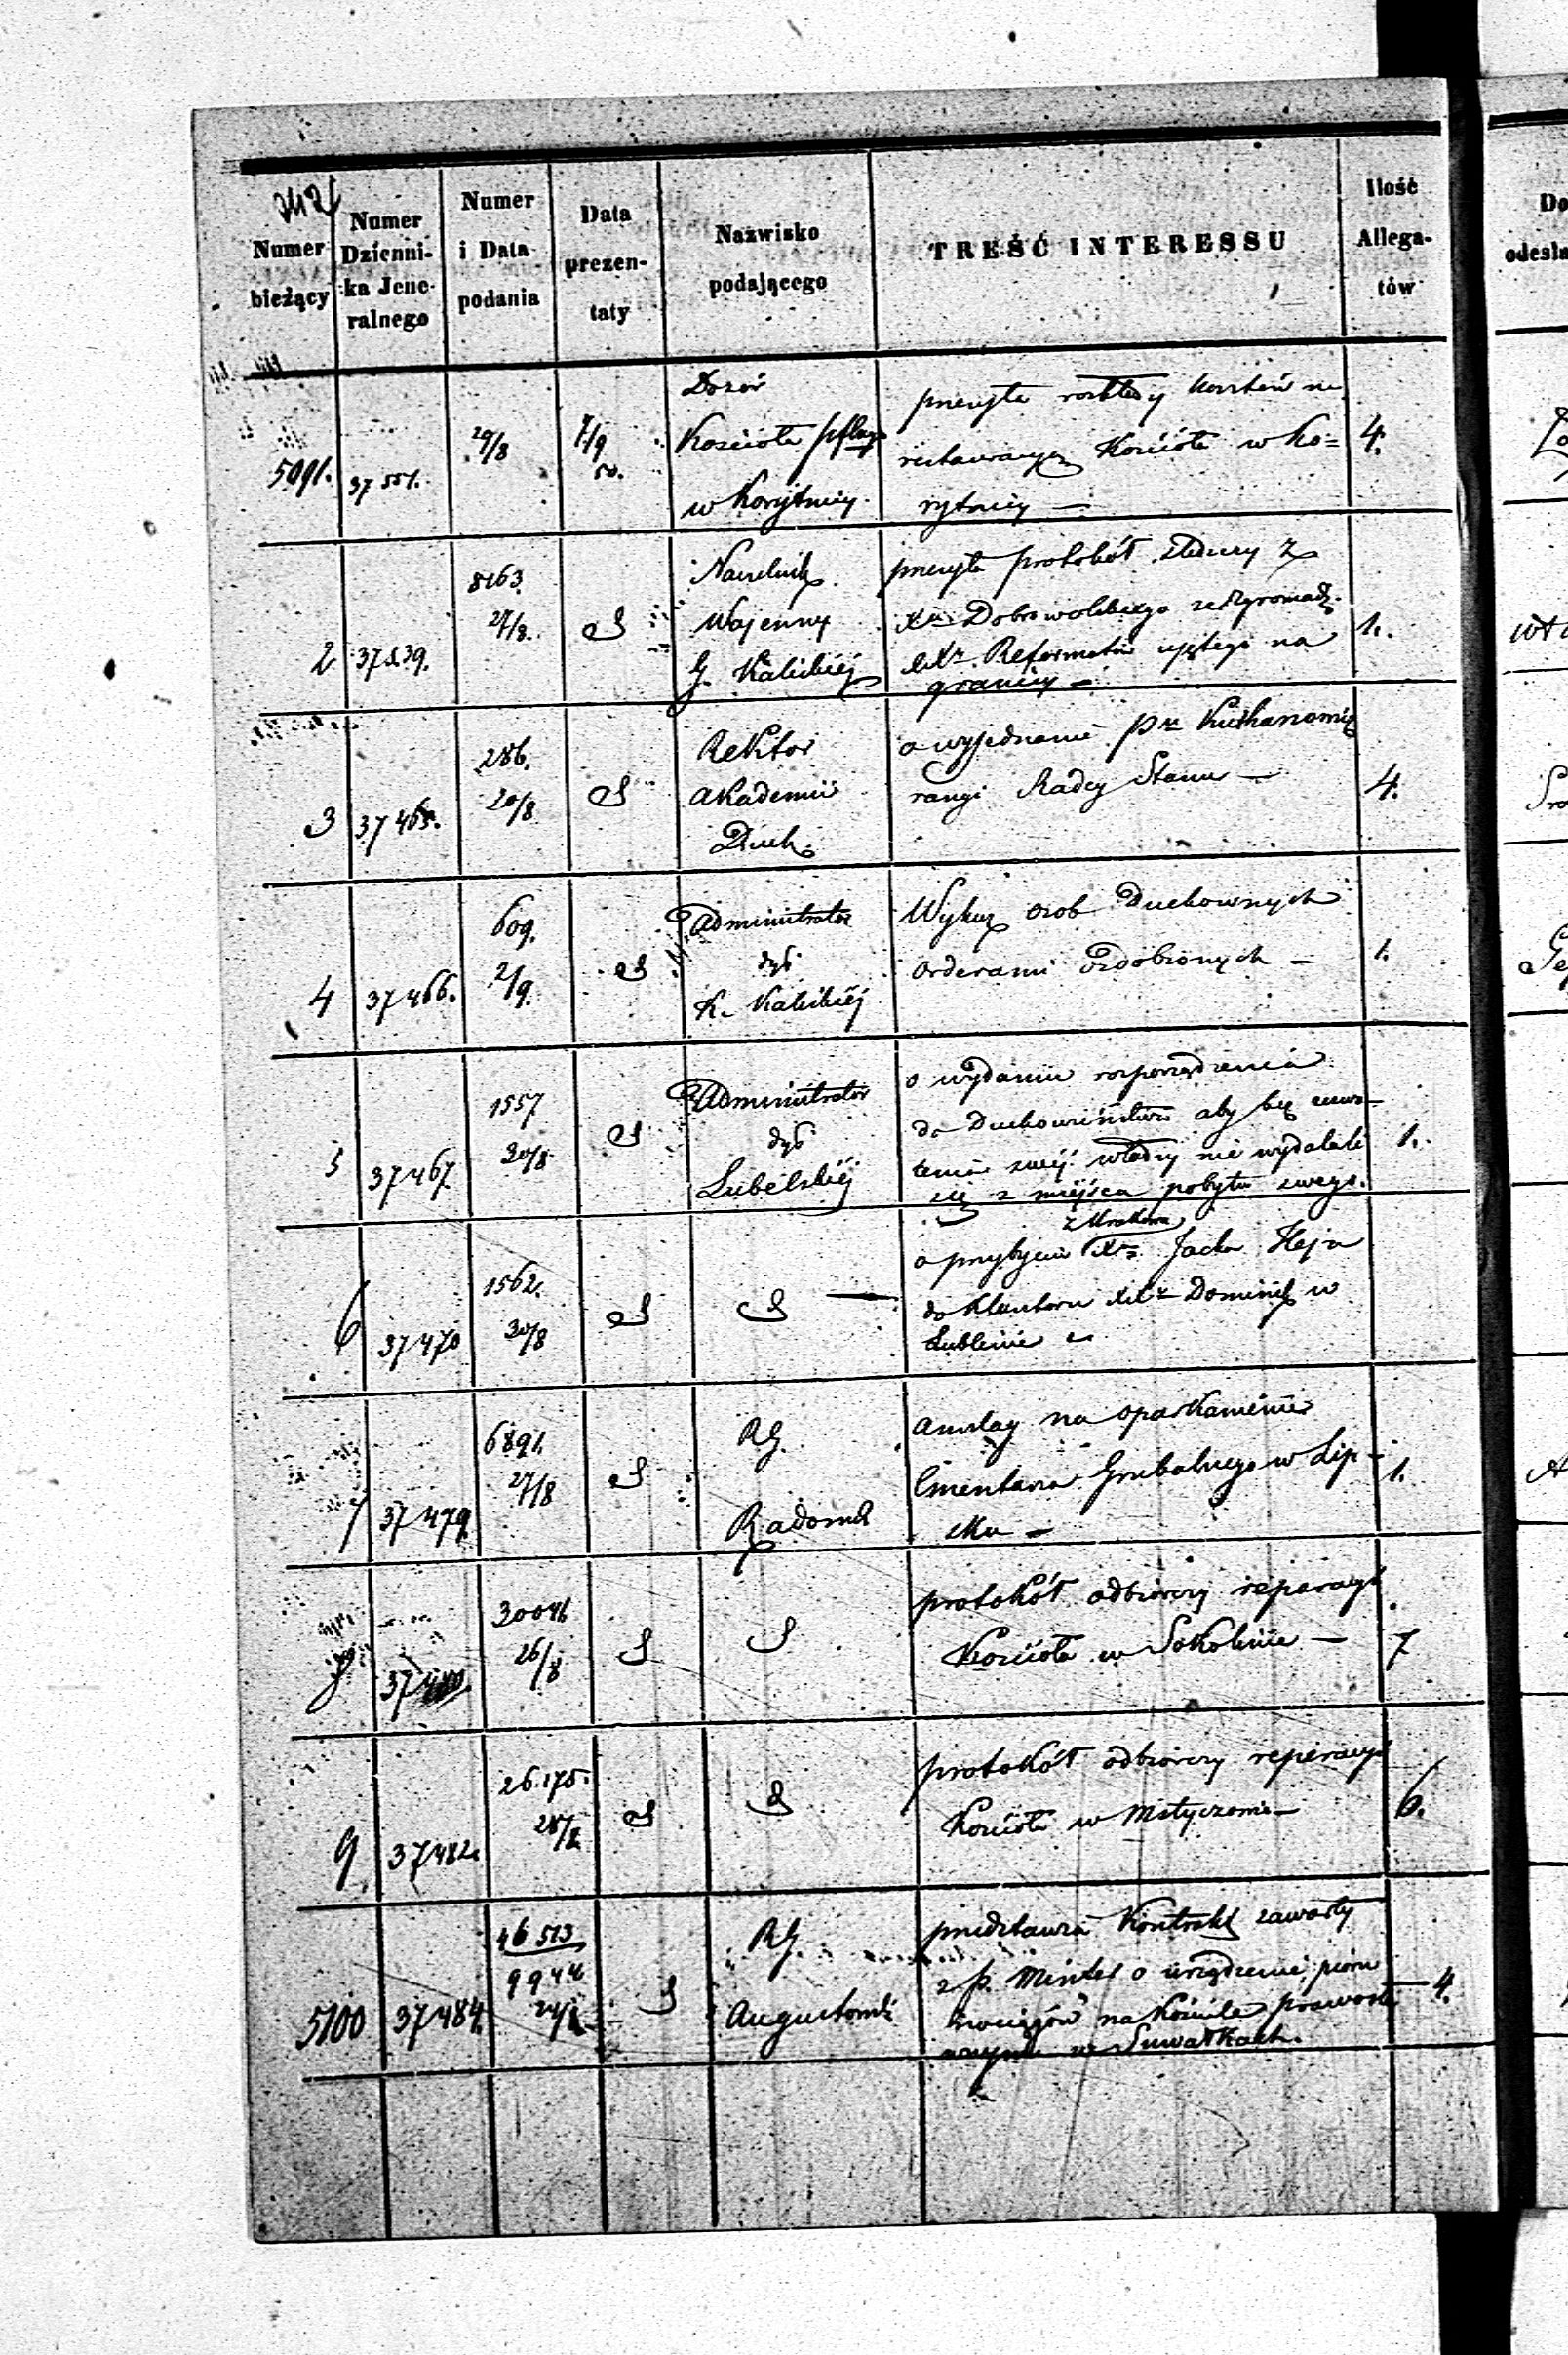 Numer
bieżący
Numer
Dzienni-
ka Jene-
ralnego
Numer
i Data
podania
Data
prezen-
taty
Nazwisko
podającego
TREŚĆ INTERESSU
Ilość
Allega-
tów
Do
odesła
5091. 37551. 29/8 7/9 Dozór
Kościoła
w Korytnicy.
przesyła rozkłady kosztów na
restauracyą Kościoła w Ko=
rytnicy —
4.
2 37539. 8163. 27/8. Naczelnik
Wojenny
G. Kaliskiéj
przesyła protokół śledczy z
Xa Dobrowolskiego ze Zgromadz.
XXr. Reformatów ujętego na
granicy —
1.
3 37465. 286. 20/8 Rektor
Akademii
Duch.
o wyjednanie
rangi Radcy Stanu —
4.
4 37466. 609. 2/9. Administrator
dyi
K. Kaliskiéj
Wykaz osob Duchownych
orderami ozdobionych —
1.
5 37467. 1557 30/8 Administrator
dyi
Lubelskiéj
o wydaniu rozporządzenia
do Duchowieństwa aby bez
swéj władzy nie wydalali
się z miejsca pobytu swego.
1.
6 37470 1562. 30/8
z Krakowa
o przybyciu Xa Jacka Heja
do Klasztoru XXr Dominik w
Lublinie
7 37479. 6891. 27/8 RG.
Radoms
anszlag na oparkanienie
Cmentarza Grzebalnego w Lip-
sku —
1.
8 26/8
protokół odbiorczy reparacyi
Kościoła w Sokolinie —
7
9 37482. 26.175. 28/8
protokół odbiorczy reperacyi
Kościoła w
6.
5100 37484. 46513
RG.
Augustows
przedstawia Kontrakt zawarty
z p. Minter o urządzenie pioru
nociągów na Kościele prawosł
w Suwałkach.
4.